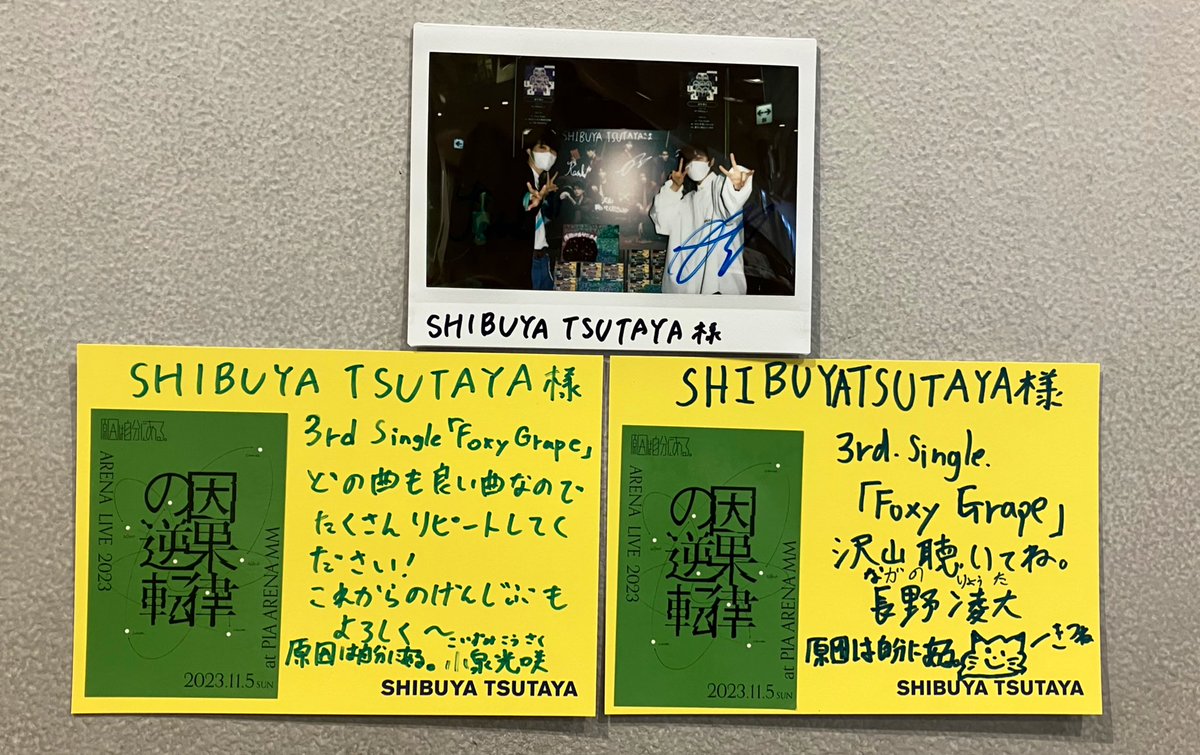 SHIBUYA TSUTAYAさま
SHIBUYA TSUTAYA 様
SHIBUYA TSUTAYA様
原因は自分にある。
ARENA LIVE 2023
因果律
の逆転
at PIA ARENA MM
2023.11.5 SUN
3rd Single「Foxy Grape」
どの曲も良い曲なので
たくさんリピートしてく
ださい!
これからのげんじぶも
よろしく〜
こいずみこうさく
原因は自分にある。小泉光咲
SHIBUYA TSUTAYA
SHIBUYATSUTAYA様
原因は自分にある。
ARENA LIVE 2023
因果律
の逆転
at PIA ARENA MM
2023.11.5 SUN
3rd. Single.
「Foxy Grape」
沢山聴いてね。
ながの りょうた
長野凌大
原因は自分にある。
きつね
SHIBUYA TSUTAYA